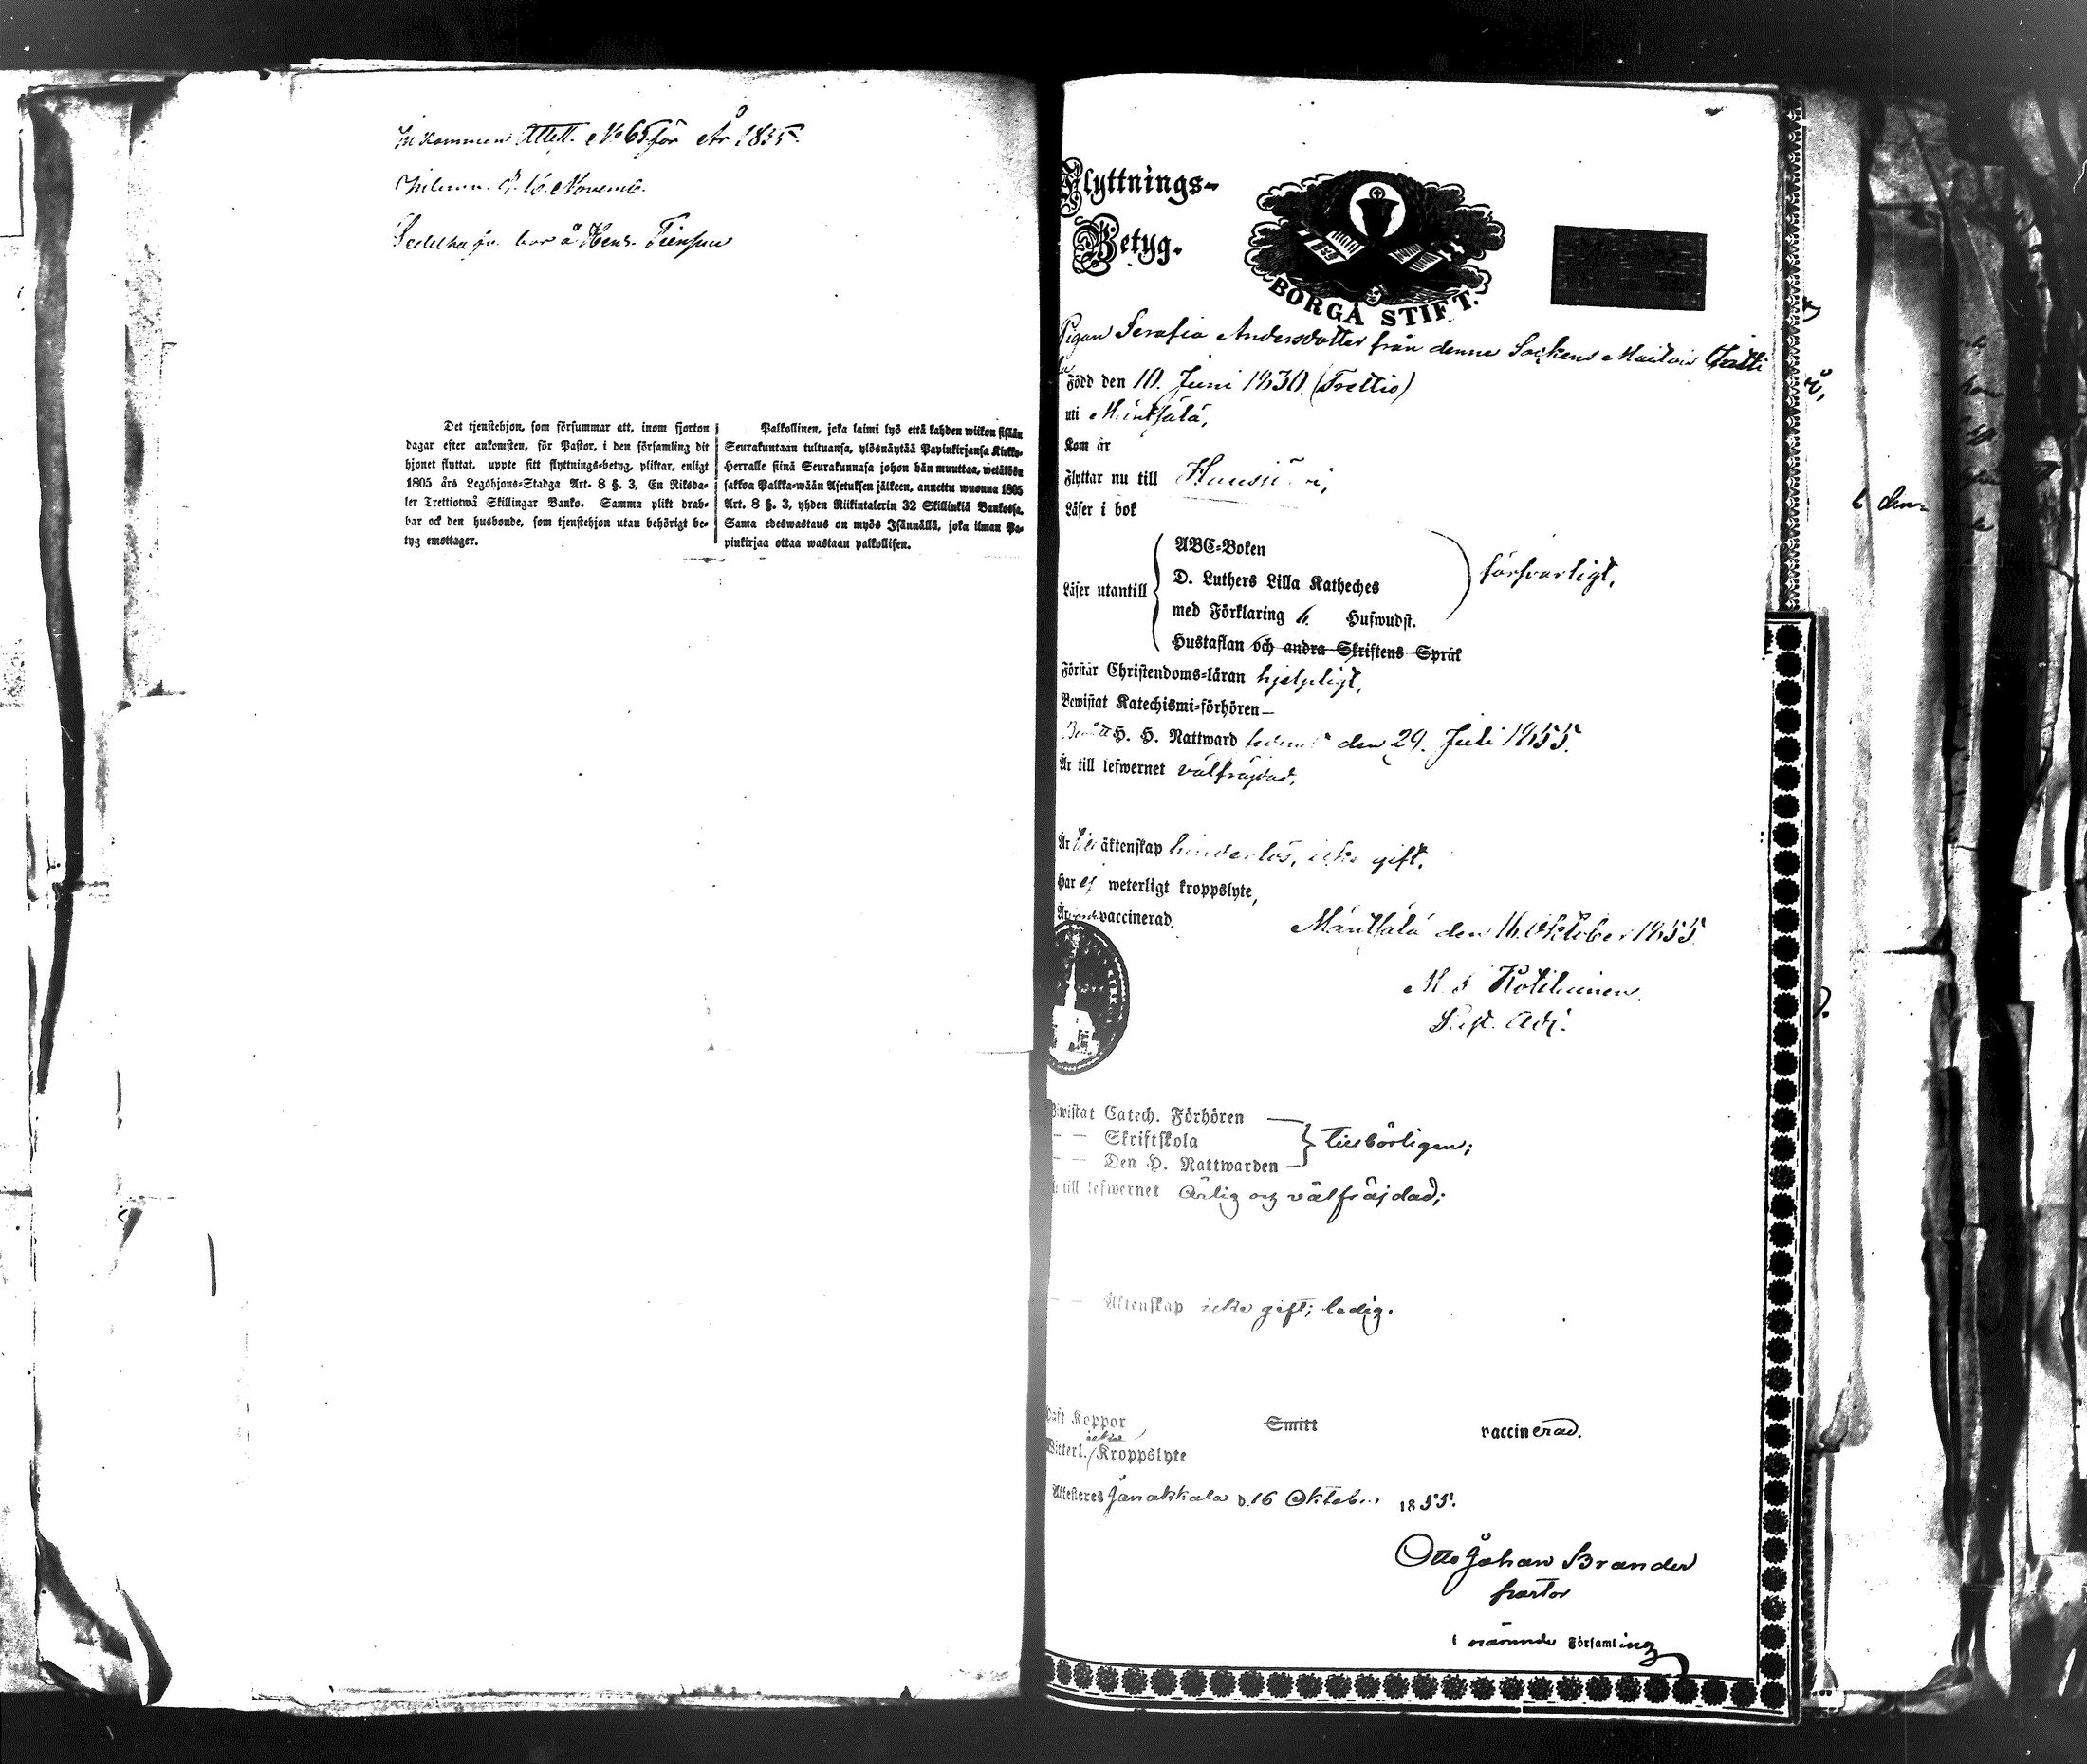 Inkommen Attest. No 65 för År 1855.
d. 16 Novemb.
bor å
Det tjenstehjon, som försummar att, inom fjorton
dagar efter ankomsten, för Pastor, i den församling dit
hjonet flyttat, uppte sitt flyttnings-betyg, pliktar, enligt
1805 års Legohjons-Stadga Art. 8 §. 3, En Riksda-
ler Trettiotwå Skillingar Banko. Samma plikt drab-
bar ock den husbonde, som tjenstehjon utan behörigt be-
tyg emottager.
Palkollinen, joka laimi lyö että kahden wiikon sisään
Seurakuntaan tultuansa, ylösnäytää Papinkirjansa Kirkko-
Herralle siinä Seurakunnasa johon hän muuttaa, wetäköön
sakkoa Palkka-wään Asetuksen jälkeen, annettu wuonna 1805
Art. 8 §. 3, yhden Riikintalerin 32 Skillinkiä Bankossa.
Sama edeswastaus on myös Isännällä, joka ilman Pa-
pinkirjaa ottaa wastaan palkollisen.
Flyttnings-
Betyg.
BORGÅ STIFT.
Pigan Serafia Andersdotter från denne Sockens
Född den 10. Juni 1830 (Trettio)
uti Mäntsälä,
Kom år
Flyttar nu till Hausjärvi,
Läser i bok
Läser utantill
ABC-Boken
D. Luthers Lilla Katheches
med Förklaring 6. Hufwudst.
Hustaflan och andra Skriftens Språk
försvarligt,
Förstår Christendoms-läran hjelpligt,
Bewistat Katechismi-förhören —
H. H. Nattward den 29. Juli 1855.
Är till lefwernet välfräjdad,
Är till äktenskap hinderlös, icke gift.
Har ej weterligt kroppslyte,
Är vaccinerad.
Mäntsälä den 16. Oktober 1855
Adj.
Bewistat Catech. Förhören
— — Skriftskola
— — Den H. Nattwarden
tillbörligen;
Är till lefwernet ärlig och välfräjdad;
— — Äktenskap icke gift; ledig.
Haft Koppor Smitt vaccinerad.
Witterl. icke Kroppslyte
Attesteres Janakkala d. 16 Oktober 1855.
Otto Johan Brander
pastor
i nämnde Församling